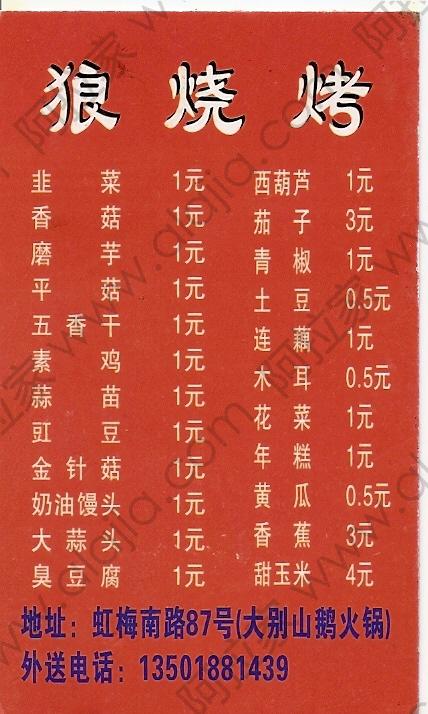 狼烧烤
韭菜 1元 西葫芦 1元
香菇 1元 茄子 3元
磨芋 1元 青椒 1元
平菇 1元 土豆 0.5元
五香干 1元 连藕 1元
素鸡 1元 木耳 0.5元
蒜苗 1元 花菜 1元
豇豆 1元 年糕 1元
金针菇 1元 黄瓜 0.5元
奶油馒头 1元 香蕉 3元
大蒜头 1元 甜玉米 4元
臭豆腐 1元
地址：虹梅南路87号(大别山鹅火锅)
外送电话：13501881439
阿拉家 www.alajia.com